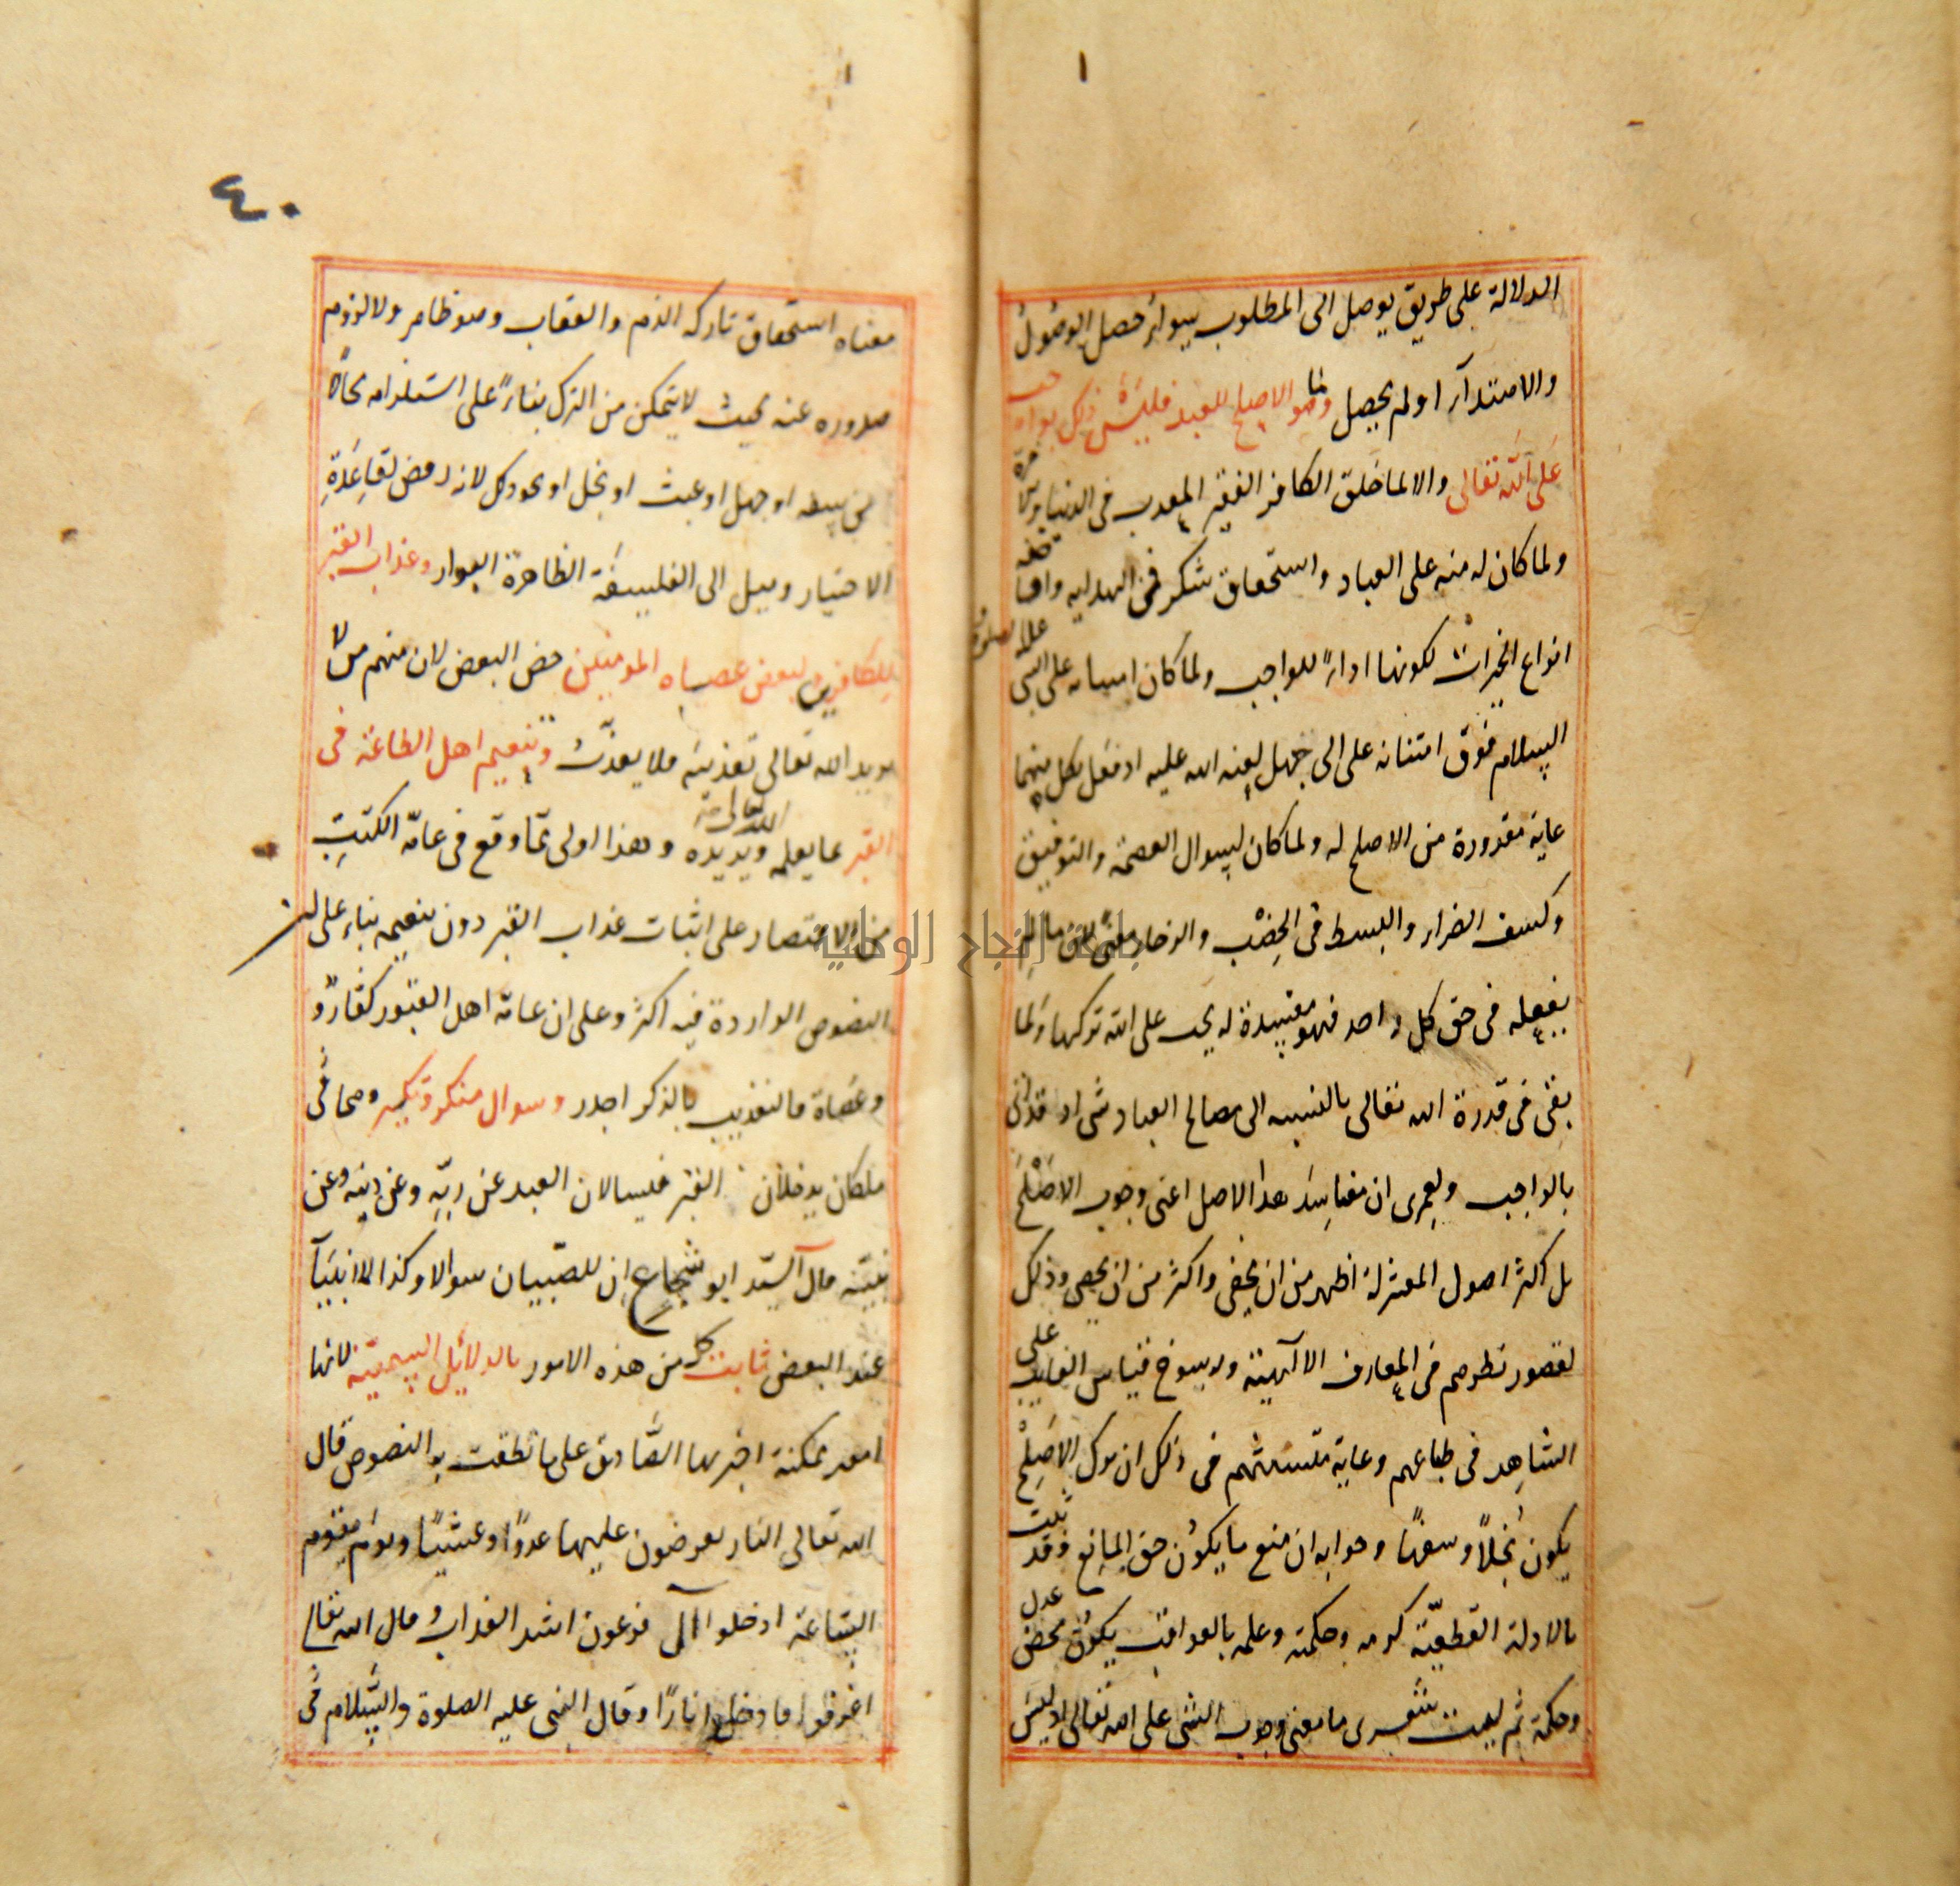 الدلالة على طريق يوصل الى المطلوب سواء حصل الوصول
والاهتداء او لم يحصل وما هو الاصلح للعبد فليس ذلك بواجب
على الله تعالى والا لما خلق الكافر الفقير المعذب في الدنيا والاخرة
ولما كان له منه على العباد واستحقاق شكر في الهداية وافاضة
انواع الخيرات لكونها اداءً للواجب ولما كان امتنانه على النبي عليه الصلوة
السلام فوق امتنانه على ابى جهل لعنه الله عليه اذ فعل بكل منهما
غاية مقدوره من الاصلح له ولما كان لسوال العصمة والتوفيق
وكشف الضراء والبسط في الخصب والرخاء معنى لان ما لم
يفعله في حق كل واحد فهو مفسدة له يجب على الله تركها ولما
بقى في قدرة الله تعالى بالنسبه الى مصالح العباد شى اذ قد اتى
بالواجب ولعمرى ان مفاسد هذا الاصل اعنى وجوب الاصلح
بل اكثر اصول المعتزلة اظهر من ان يخفى واكثر من ان يحصى وذلك
لقصور نظرهم في المعارف الالهية ورسوخ قياس الغايب على
الشاهد في طباعهم وغاية تشبثهم في ذلك ان ترك الاصلح
يكون بخلاً وسفهًا وجوابه ان منع ما يكون حق المانع وقد ثبت
بالادلة القطعية كرمه وحكمته وعلمه بالعواقب يكون محض عدل
وحكمة ثم ليت شعرى ما معنى وجوب الشى على الله تعالى اذ ليس
٤٠
معناه استحقاق تاركه الذم والعقاب وهو ظاهر ولا لزوم
صدوره عنه بحيث لا يتمكن من الترك بناءً على استلزامه محالاً
من سفه او جهل او عبث او بخل او نحو ذلك لانه رفض لقاعدة
الاختيار وميل الى الفلسفة الظاهرة العوار وعذاب القبر
للكافرين ولبعض عصاه المومنين خص البعض لان منهم من لا
يريد الله تعالى تعذيبه فلا يعذب وتنعيم اهل الطاعة في
القبر بما يعلمه الله تعالى ويريده وهذا اولى مما وقع في عامة الكتب
من الاقتصار على اثبات عذاب القبر دون تنعيمه بناء على ان
النصوص الواردة فيه اكثر وعلى ان عامة اهل القبور كفار و
وعصاة فالتعذيب بالذكر اجدر وسوال منكر ونكير وهما
ملكان يدخلان القبر فيسالان العبد عن ربه وعن دينه وعن
نبيه قال السيد ابو شجاع ان للصبيان سوالا وكذا للانبيآ
عند البعض ثابت كل من هذه الامور بالدلائل السمعية لانها
امور ممكنة اخبر بها الصادق على ما نطقت به النصوص قال
الله تعالى النار يعرضون عليها غدوًا وعشيًا ويوم يقوم
الساعة ادخلوا آل فرعون اشد العذاب وقال الله تعالى
اغرقوا فادخلوا نارًا وقال النبى عليه الصلوة والسلام في
جامعة النجاح الوطنية